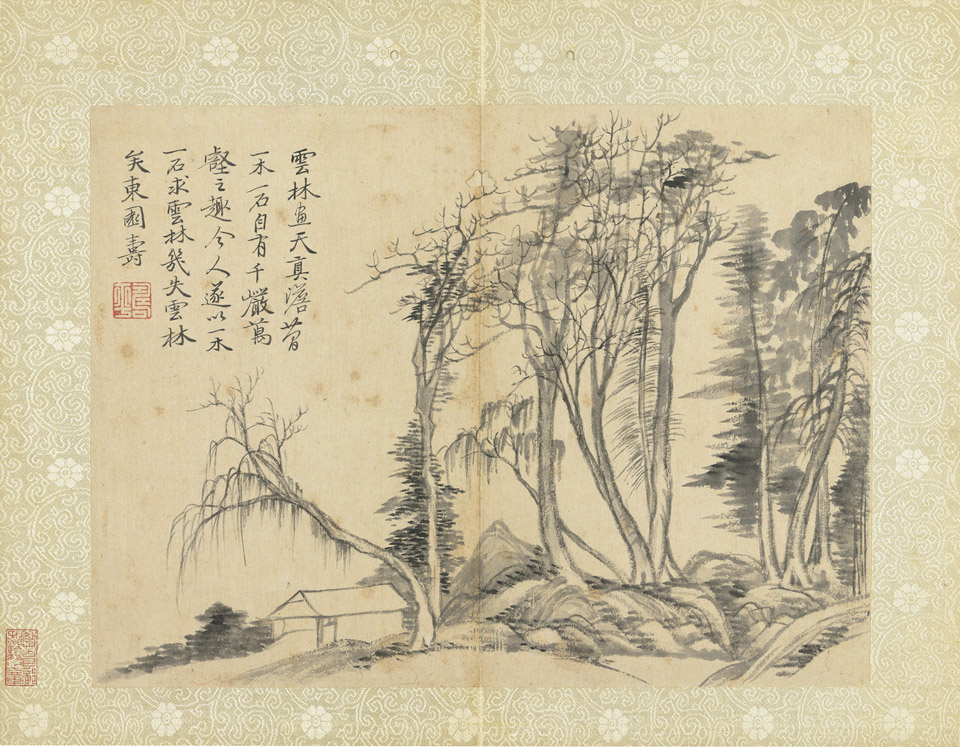 雲林畫天真澹簡
一木一石自有千巖萬
壑之趣今人遂以一木
一石求雲林幾失雲林
矣東園壽